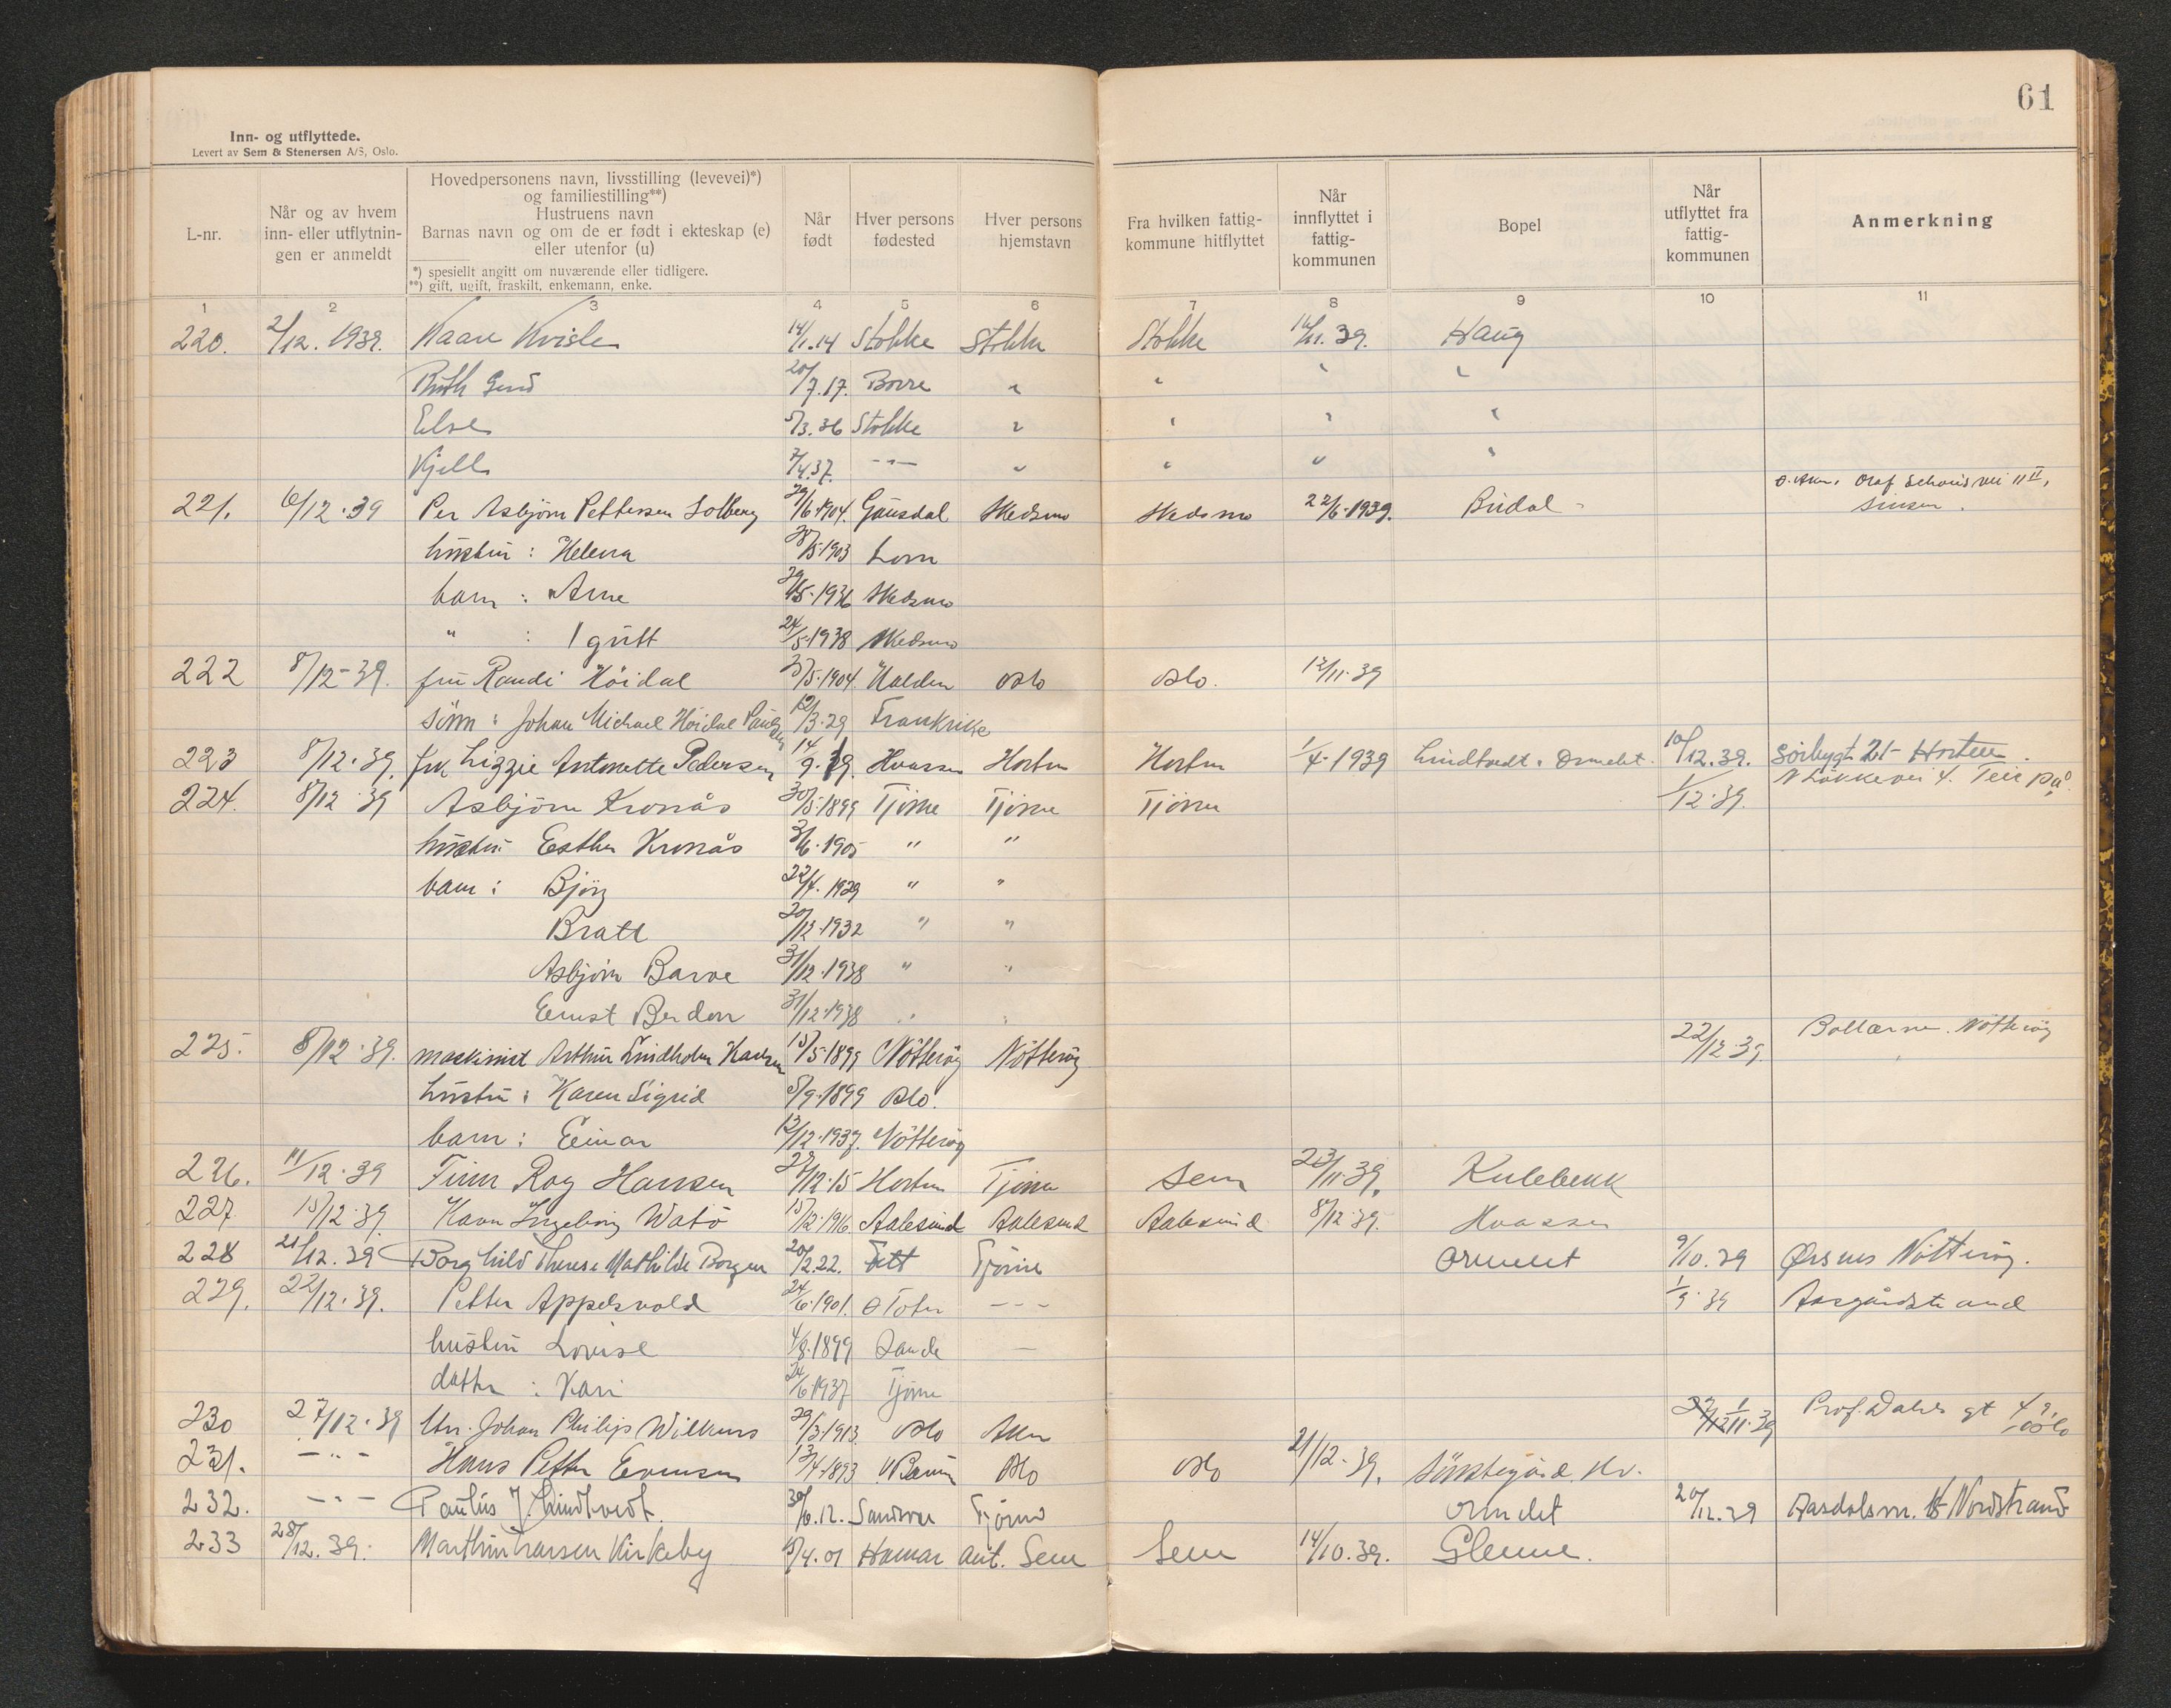 61
Inn- og utflyttede.
Levert av Sem & Stenersen A/S, Oslo.
L-nr.
Når og av hvem inn- eller utflytnin- gen er anmeldt
Hovedpersonens navn, livsstilling (levevei)*)
og familiestilling**)
Hustruens navn
Barnas navn og om de er født i ekteskap (e)
eller utenfor (u)
*) spesiellt angitt om nuværende eller tidligere.
**) gift, ugift, fraskilt, enkemann, enke.
Når født
Hver persons fødested
Hver persons hjemstavn
Fra hvilken fattig- kommune hitflyttet
Når innflyttet i fattig- kommunen
Bopel
Når utflyttet fra fattig- kommunen
Anmerkning
1 2 3 4 5 6 7 8 9 10 11
220. 2/12. 1939. Kaare Kvisle 14/1.14 Stokke Stokke Stokke 39. Haug
Ruth 20/7.17. Borre "
Else 5/3.36 Stokke "
Kjell 7/4.37. -"- "
221. 6/12.39 Per Asbjørn Pettersen Solberg 29/6.1904. Gausdal Skedsmo Skedsmo 22/6.1939. Ø. Aker, Olaf Schous vei 11 II, Sinsen.
hustru : Helena 28/5.1903 Lom
barn : Arne 1936 Skedsmo
" : 1 gutt 24/5.1938 Skedsmo
222 8/12-39. fru Randi Höidal 1904. Halden Oslo Oslo. 12/11.39
sönn : Johan Michael Höidal 12/3.29 Frankrike
223 8/12.39. frk Lizzie Antonette Pedersen 14/9. Hvasser Horten Horten 1/4.1939 Lindtvedt. Ormelet. 10/12.39. Horten.
224. 8/12.39 Asbjörn Kronås 30/5.1899 Tjöme Tjöme Tjöme 1/12.39. 4. Teie
hustru Esther Kronås 1905 " "
barn : Bjørg 22/4.1929 " "
Bratt 20/12.1932 " "
Asbjörn Barve 31/12.1938 " "
Ernst Berdon 31/12.1938 "
225. 8/12.39. maskinist Arthur Lindholm 15/5.1899 Nötteröy Nötteröy 22/12.39. Bollærne. Nötteröy
hustru : Karen Sigrid 5/9.1899 Oslo.
barn : Einar 12/12.1937. Nötteröy
226. 11/12.39 Finn Roy Hansen 12.15 Horten Tjöme Sem 23/11.39. Kulebekk
227. 15/12.39. Ingeborg Watö 15/12.1916. Aalesund Aalesund Aalesund 8/12.39. Hvasser
228 21/12.39 Borghild Therese Mathilde Borgen 20/2.22. Tjöme Ormelet 9/10.39 Ørsnes Nötteröy.
229. 22/12.39. Petter Appelsvold 24/6.1901. Ø Toten --- 1/9.39 Aasgårdstrand
hustru Lovise 4/8.1899 Sande —
datter : Kari 24/6 1937 Tjöme
230 27/12.39 Johan Philip 29/3.1913. Oslo Aker 1/11.39 Prof. Dahls gt 49, Oslo
231. -"- Hans Petter Evensen 13/4.1893 Oslo Oslo 21/12.39.
232. -"- Paulus J. Lindtvedt. 30/6.12. Tjöme Ormelet 20/12.39 Nordstrand
233 28/12.39. Martin Larsen Kirkeby 5/4.01 Hamar ant. Sem Sem 14/10.39. Glenne.